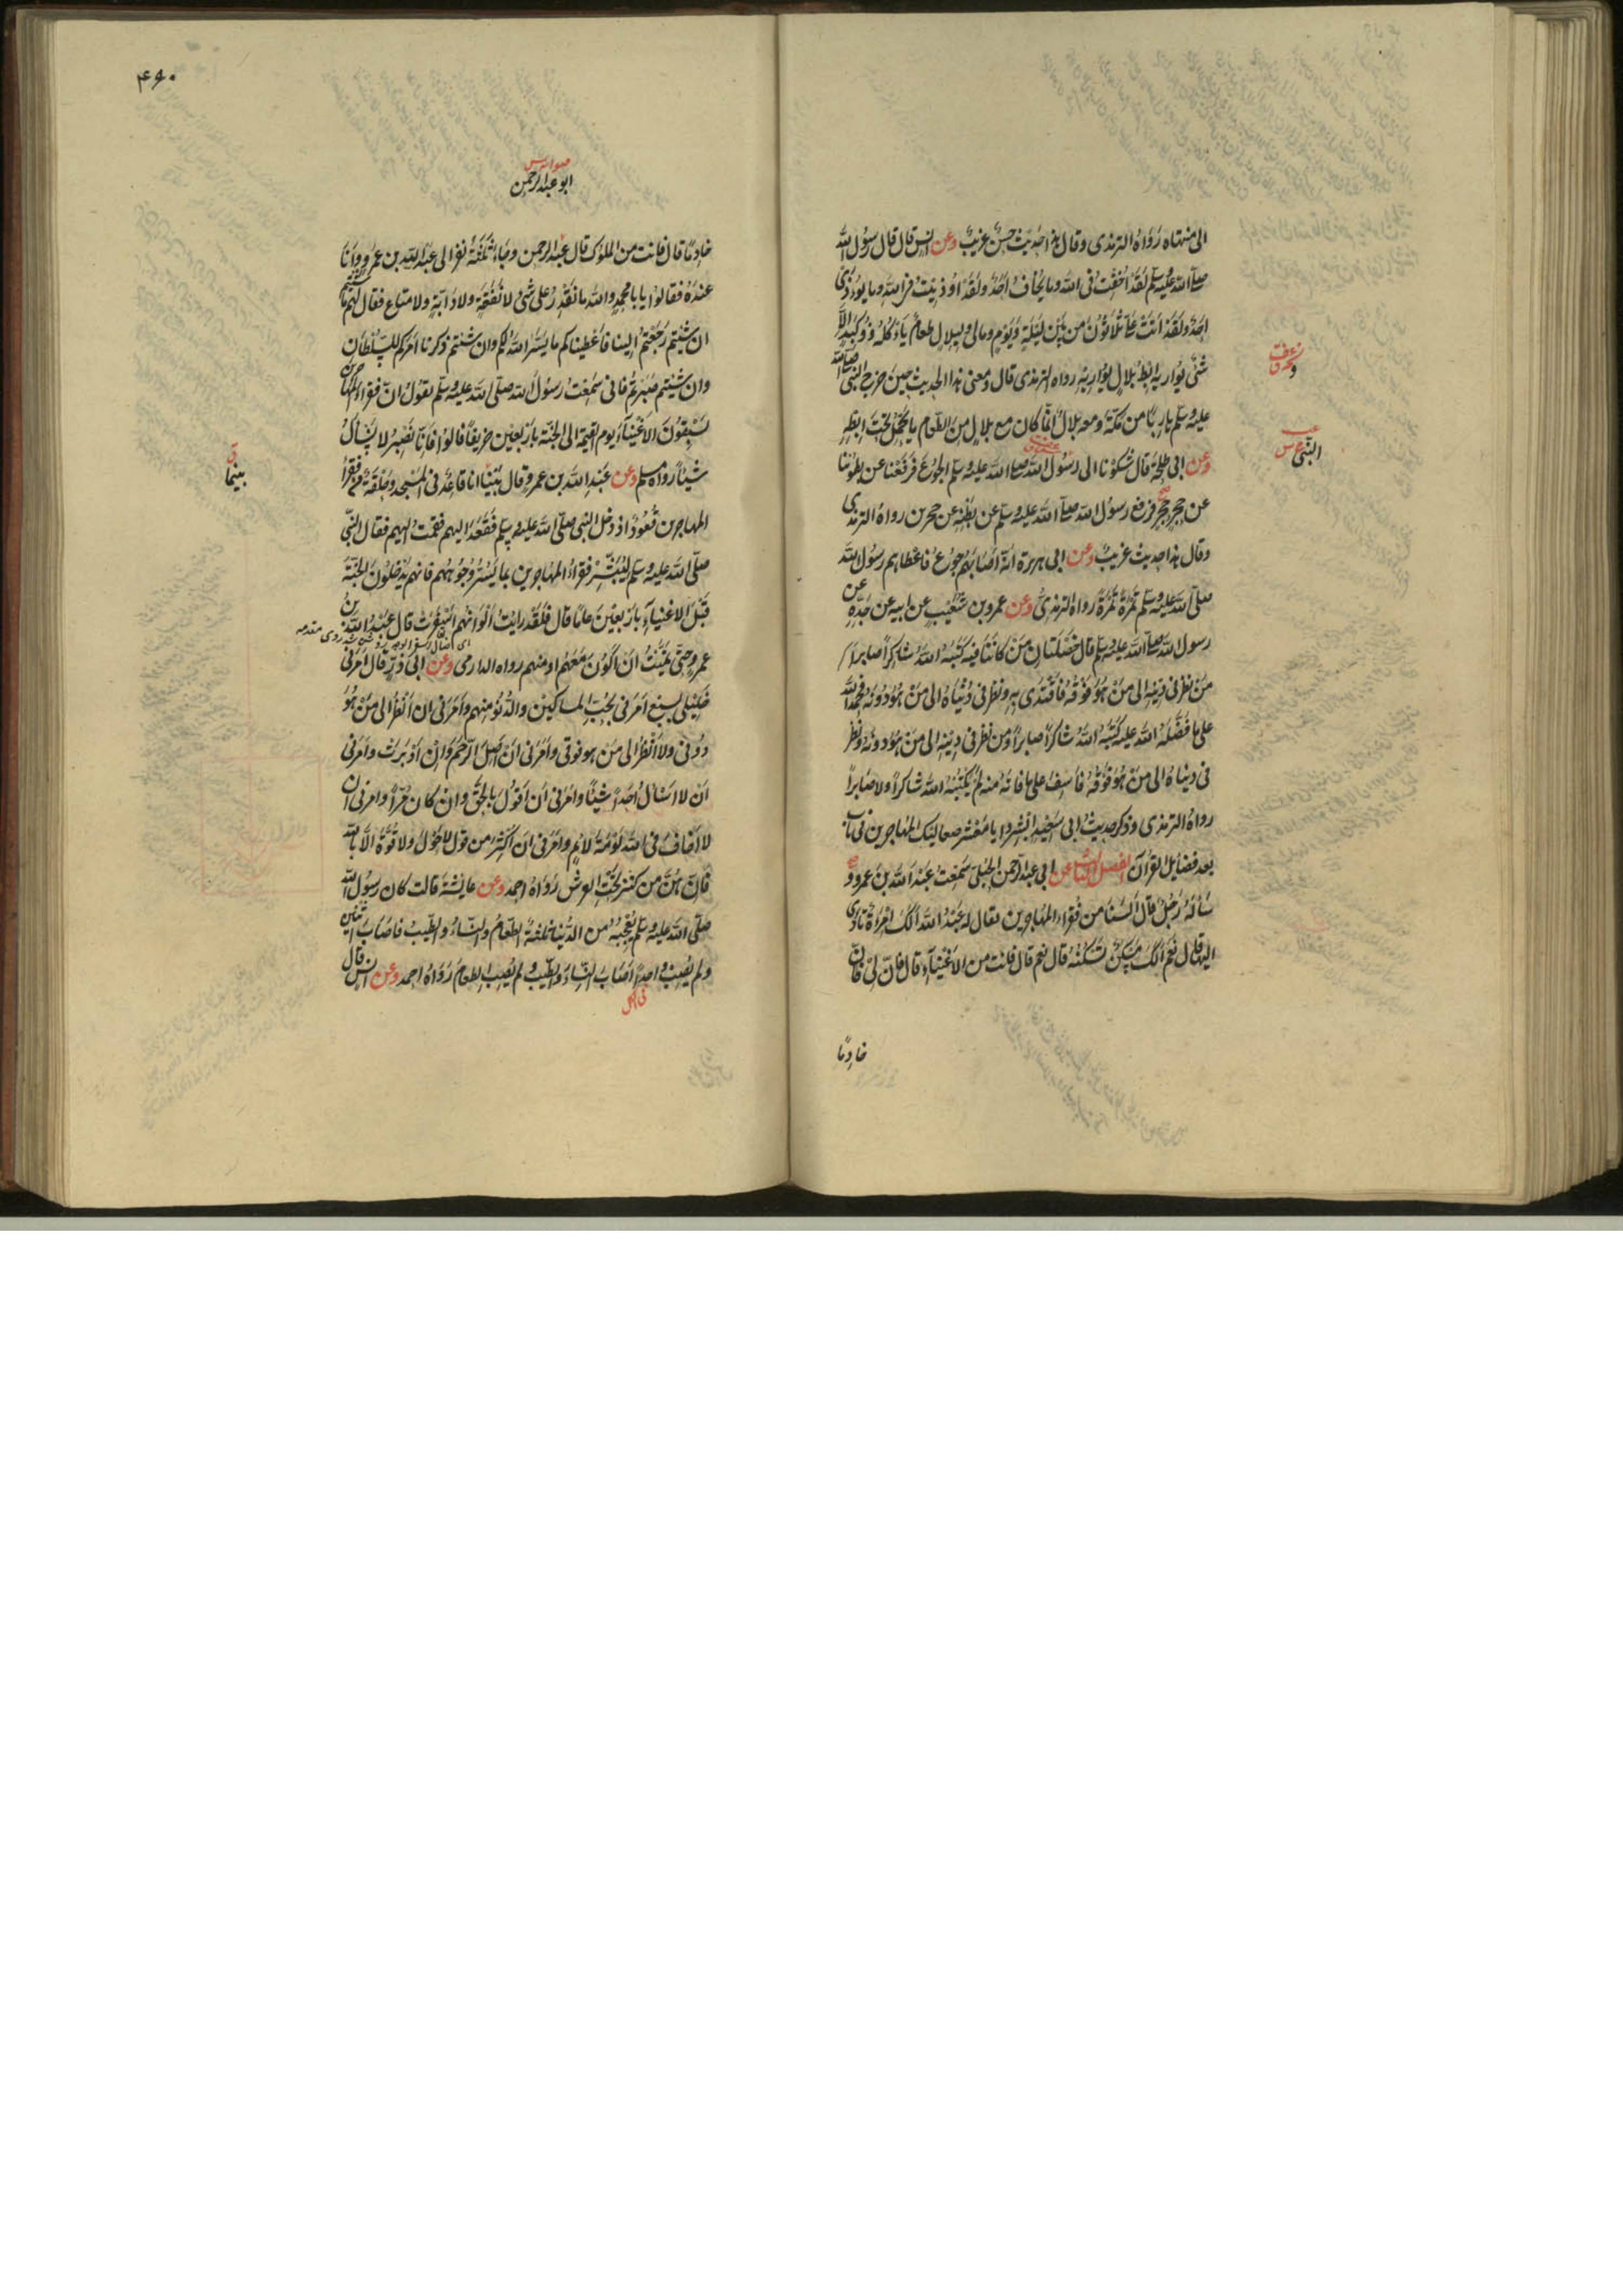 الى منتهاه رَوَاهُ الترمذى وقال هذا حديث حسنٌ غريبٌ وعن انس قال قال رسُول الله
صلى الله عليه وسلم لقد أُخِفْتُ فى الله وما يُخَافُ اَحَدٌ ولقد اُوذِيتُ فى الله وما يُؤذى
احدٌ ولقد اَتَتْ عَلَىَّ ثَلٰثُونَ من بَيْنِ لَيْلَةٍ وَيَوْمٍ ومالى ولبلالٍ طعامٌ يَأكُلُهُ ذُو كَبِدٍ اِلَّا
شَئٌ يُوَاريه اِبِطُ بلالٍ رواه الترمذى قال ومعنى هذا الحديث حين خرج النبى صلى الله
عليه وسلم هارِبًا من مَكَّةَ ومعه بلالٌ اِنّما كان مع بلالٍ مِنَ الطّعام ما يَحْمِلُ تحت اِبِطِهِ
وعن ابى طلحة قال شكونا الى رسُول الله صلى الله عليه وسلم الجُوعَ فَرَفَعْنا عن بطُوننا
عن حجرٍ حجرٍ فرفع رسُول الله صلى الله عليه وسلم عن بطنه عن حجرين رواهُ الترمذى
وقال هذا حديث غريبٌ وعن ابى هريرة انّه اصابهم جُوعٌ فاعطاهم رسُول الله
صلى الله عليه وسلم تَمْرَةً تَمْرَةً رواه الترمذىُّ وعن عمرو بن شُعَيْبٍ عن ابيه عن جَدِّهِ عن
رسول الله صلى الله عليه وسلم قال خَصْلَتانِ مَنْ كانَتَا فيه كَتَبَهُ اللهُ شاكِراً صابراً
مَنْ نظر فى دِيْنِه الى مَنْ هُوَ فَوْقَهُ فَاقْتَدَى بِهِ ونظر فى دُنْيَاهُ الى مَنْ هُوَ دُونَهُ فحمد اللهَ
على ما فَضَّلَهُ اللهُ عليه كَتَبَهُ اللهُ شاكراً صابراً ومن نظر فى دِينِه الى مَنْ هُوَ دونه ونظر
فى دنياهُ الى مَنْ هُوَ فَوْقَهُ فَاَسِفَ على ما فاتَهُ منه لَمْ يَكْتُبْهُ اللهُ شاكراً ولا صابراً
رواهُ الترمذى وذكر حديثُ ابى سَعِيْدٍ اَبْشِرُوا يا مَعْشَرَ صعاليك المُهاجرين فى باب
بعد فضايل القرآن الفصل الثالث عن ابى عبد الرّحمن الحُبُلىّ سَمِعْتُ عَبْدَ اللهِ بنَ عمرو و
سَأَلَهُ رَجُلٌ قال اَلَسْنَا من فُقَراء المُهَاجرين فقال له عَبْدُ اللهِ اَلَكَ امْرَأةٌ تَأوِى
اليها قال نَعَمْ اَلَكَ مَسْكَنٌ تَسْكُنُهُ قال نعم قال فانت من الاَغْنِيَآءِ قال فَاِنَّ لِىْ
خادِمًا
النّبى س
۴۹۰
ابو عبد الرحمن
خادِمًا قال فانت من الملوك قال عبد الرحمن وجاءَ ثَلٰثَةُ نفرٍ الى عبد الله بن عمرٍو وَاَنَا
عندَهُ فقالوا يا بامحمدٍ والله ما نَقْدِرُ على شئٍ لا نَفَقَةٍ ولا دَابّةٍ ولا متاعٍ فقال لهم ما شئتم
ان شِئْتُم رَجَعْتُم الينا فَاَعْطَيْناكم ما يَسَّرَ اللهُ لكم وان شئتم ذكرنا اَمْرَكم للسّلطان
وان شئتم صَبَرتُم فانى سَمِعْتُ رسُول الله صلى الله عليه وسلم يقُولُ اِنّ فقراء المهاجرين
يَسْبِقُونَ الاَغْنِيَآءَ يوم القيٰمة الى الجنّة باَرْبَعِيْنَ خريفاً قالوا فَاِنَّا نَصْبِرُ لا نَسْأَلُ
شيئاً رواه مسلم وعن عَبْدِ الله بن عمرو قال بَيْنا انا قاعدٌ فى المَسْجد وحَلْقَةٌ من فقراء
المهاجرين قُعُودٌ اذ دخل النبى صلّى الله عليه وسلم فَقَعَدَ اليهم فقمت اليهم فقال النّبى
صلى الله عليه وسلم لِيُبَشَّرْ فقراءُ المهاجرين بما يَسُرُّ وُجُوهَهم فانهم يَدْخلُونَ الجَنّةَ
قَبْلَ الاغنياءِ بِاَرْبَعِيْنَ عامًا قال فلَقَدْ رايتُ اَلْوَانَهُم اَسْفَرَتْ قال عَبْدُ اللهِ بنُ
عمرٍو حتّى تمنّيتُ اَنْ اَكُوْنَ مَعَهُم او منهم رواه الدارمى وعن ابى ذرٍّ قال اَمَرَنى
خَلِيْلى بسبعٍ اَمَرَنى بحُبِّ المساكين والدُّنُوِّ منهم واَمَرَنى ان اَنْظُرَ الى مَنْ هُوَ
دُونى ولا اَنْظُرَ الى مَن هو فوقى واَمَرَنى اَنْ اَصِلَ الرَّحِمَ وَاِنْ اَدْبَرَتْ واَمَرَنى
اَنْ لا اَسْأَلَ اَحَداً شَيْئًا واَمَرَنى اَن اَقُولَ بالحَقّ وانْ كان مُرّاً وامرنى ان
لا اَخافَ فى الله لَوْمَةَ لائمٍ واَمَرَنى ان اُكْثِرَ من قول لا حَوْلَ ولا قُوَّةَ اِلَّا باللهِ
فَاِنّهُنَّ من كنزٍ تَحْتَ العرش رَوَاهُ احمد وعن عايشة قالت كان رسُول اللهِ
صلّى الله عليه وسلم يُعْجِبُهُ من الدُّنيا ثلٰثةٌ الطّعامُ والنّساءُ والطّيبُ فاَصابَ اثنين
ولم يُصِبْ واحداً اَصَابَ النّساءَ والطّيب ولم يُصِب الطعامَ رَوَاهُ احمد وعن انسٍ قال
بينما